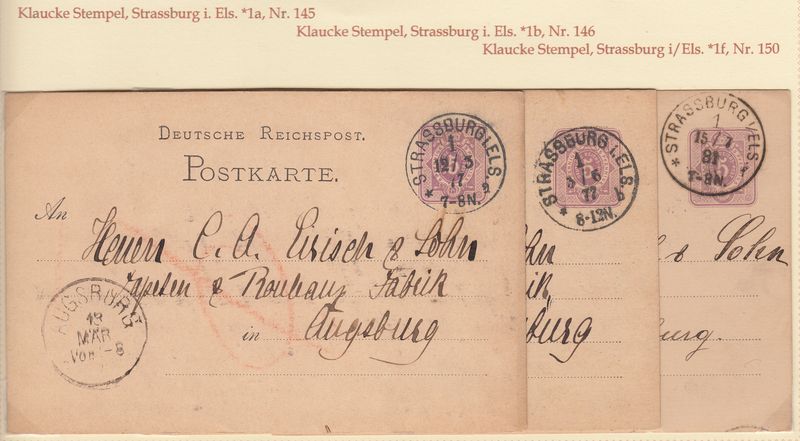 Klaucke Stempel, Strassburg i. Els. *1a, Nr. 145
Klaucke Stempel, Strassburg i. Els. *1b, Nr. 146
Klaucke Stempel, Strassburg i/Els. *1f, Nr. 150
DEUTSCHE REICHSPOST.
POSTKARTE.
STRASSBURG I. ELS.
1
12/3
77
7-8N.
* a
STRASSBURG I. ELS.
1
5/6
77
8-12N.
* b
STRASSBURG I/ELS.
1
15/7
81
7-8N.
* *
An
Herren C. A. Eirisch & Sohn
Tapeten & Rouleaux Fabrik
in Augsburg
AUGSBURG
13
MÄR
VORM -8
hn
ik
burg
& Sohn
urg.